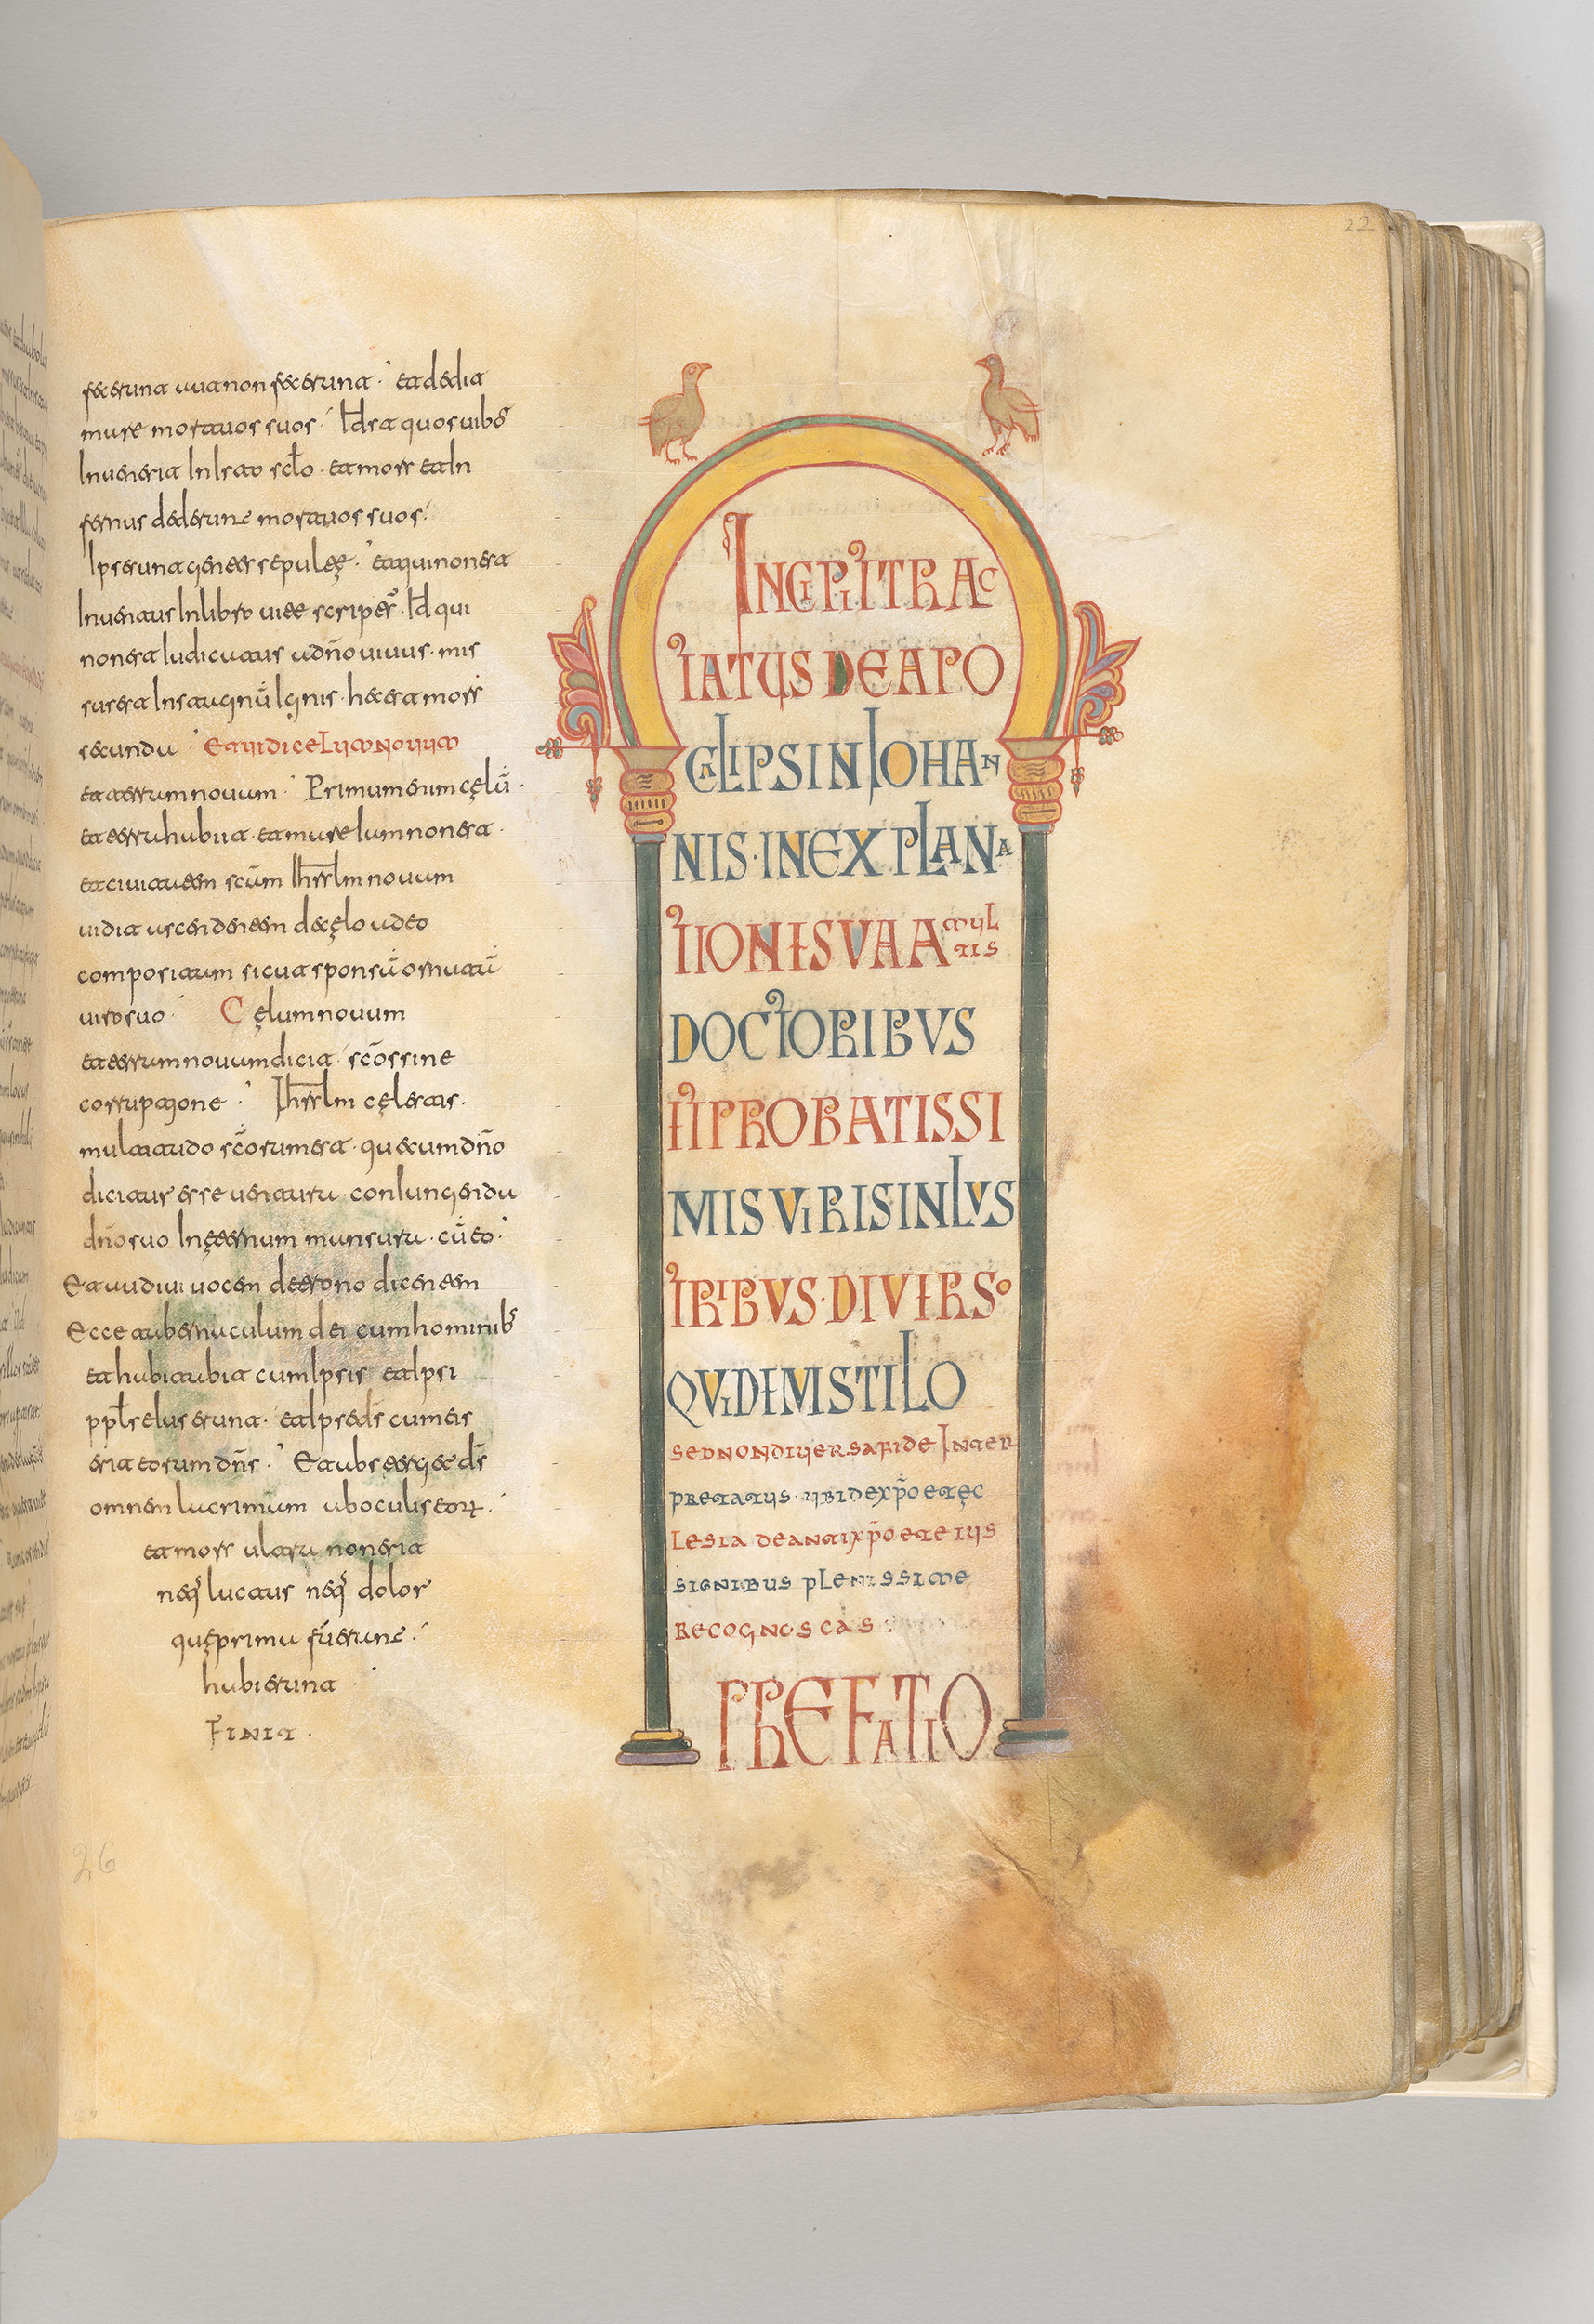 fecerunt aut non fecerunt · et dedit
mare mortuos suos · Id est quos uibos
Inuenerit In isto sclo · et mors et In
fernus dederunt mortuos suos
Ipse sunt gentes sepulte · et qui non est
Inuentus In libro uite scriptus · Id qui
non est Iudicatus a dño uiuus · mis
sus est In stagnū Ignis · hec est mors
secunda · Et uidi celum nouum
et terram nouam · Primum enim celū ·
et terra habiit · et mare Iam non est ·
et ciuitatem scām Ihrlm nouam
uidit ascendentem de celo a deo
compositam sicut sponsā ornatā
uiro suo · Celum nouum
et terram nouam dicit · scōs sine
corruptione · Ihrlm celestis ·
multitudo scōrum est · que cum dño
dicitur esse uentura · coniungenda
dño suo In eternum mansura · cū eo ·
Et audiui uocem de trono dicentem
Ecce tabernaculum dei cum hominibs
et habitabit cum Ipsis et Ipsi
ppls eius erunt · et Ipse ds cum eis
erit eorum dñs · Et absterget ds
omnem lacrimam ab oculis eorum ·
et mors ultra non erit
neq luctus neq dolor
que prima fuerunt ·
habierunt ·
FINIT ·
INCIPIT TRAC
TATUS DE APO
CALIPSIN IOHAN
NIS · IN EXPLANA
TIONE SUA A MUL
TIS
DOCTORIBUS
ET PROBATISSI
MIS VIRIS INLUS
TRIBUS · DIVERSO
QUIDEM STILO
SED NON DIUERSA FIDE INTER
PRETATUS · UBI DE XPO ET EC
LESIA DE ANTIXPO ET EIUS
SIGNIBUS PLENISSIME
RECOGNOSCAS ·
PREFATIO
22
26